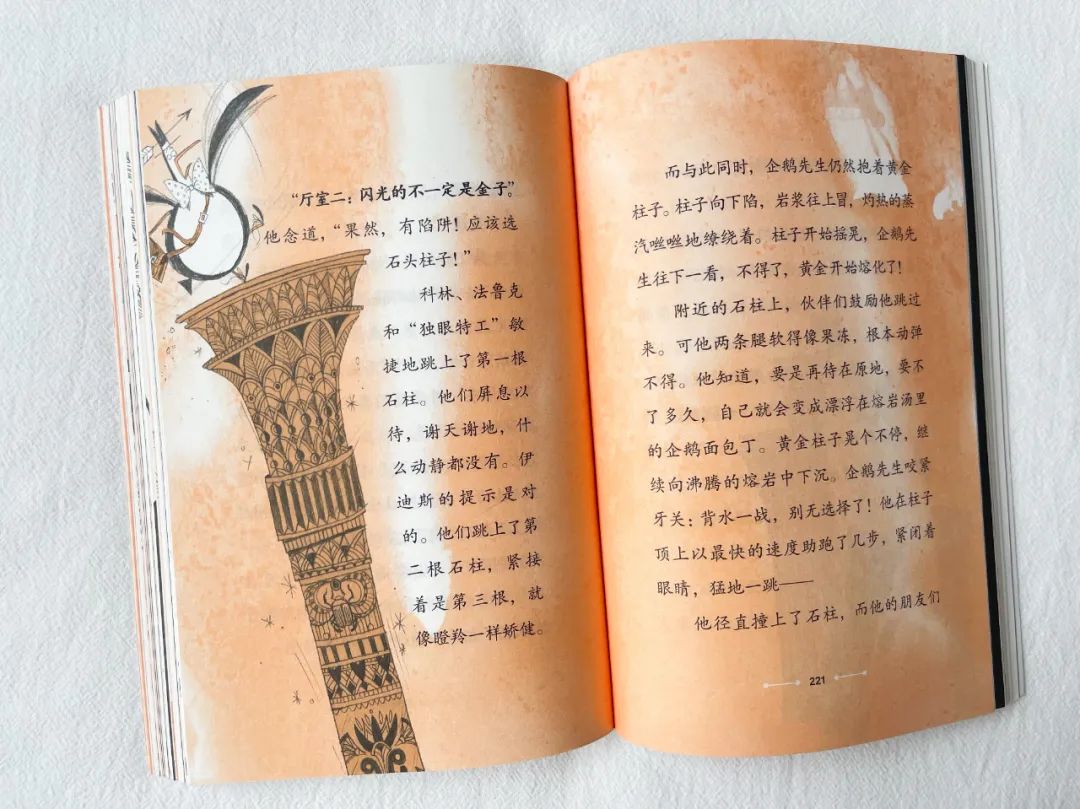 “厅室二：闪光的不一定是金子”。
他念道，“果然，有陷阱！应该选
石头柱子！”
科林、法鲁克
和“独眼特工”敏
捷地跳上了第一根
石柱。他们屏息以
待，谢天谢地，什
么动静都没有。伊
迪斯的提示是对
的。他们跳上了第
二根石柱，紧接
着是第三根，就
像瞪羚一样矫健。
而与此同时，企鹅先生仍然抱着黄金
柱子。柱子向下陷，岩浆往上冒，灼热的蒸
汽咝咝地缭绕着。柱子开始摇晃，企鹅先
生往下一看，不得了，黄金开始熔化了！
附近的石柱上，伙伴们鼓励他跳过
来。可他两条腿软得像果冻，根本动弹
不得。他知道，要是再待在原地，要不
了多久，自己就会变成漂浮在熔岩汤里
的企鹅面包丁。黄金柱子晃个不停，继
续向沸腾的熔岩中下沉。企鹅先生咬紧
牙关：背水一战，别无选择了！他在柱子
顶上以最快的速度助跑了几步，紧闭着
眼睛，猛地一跳——
他径直撞上了石柱，而他的朋友们
221